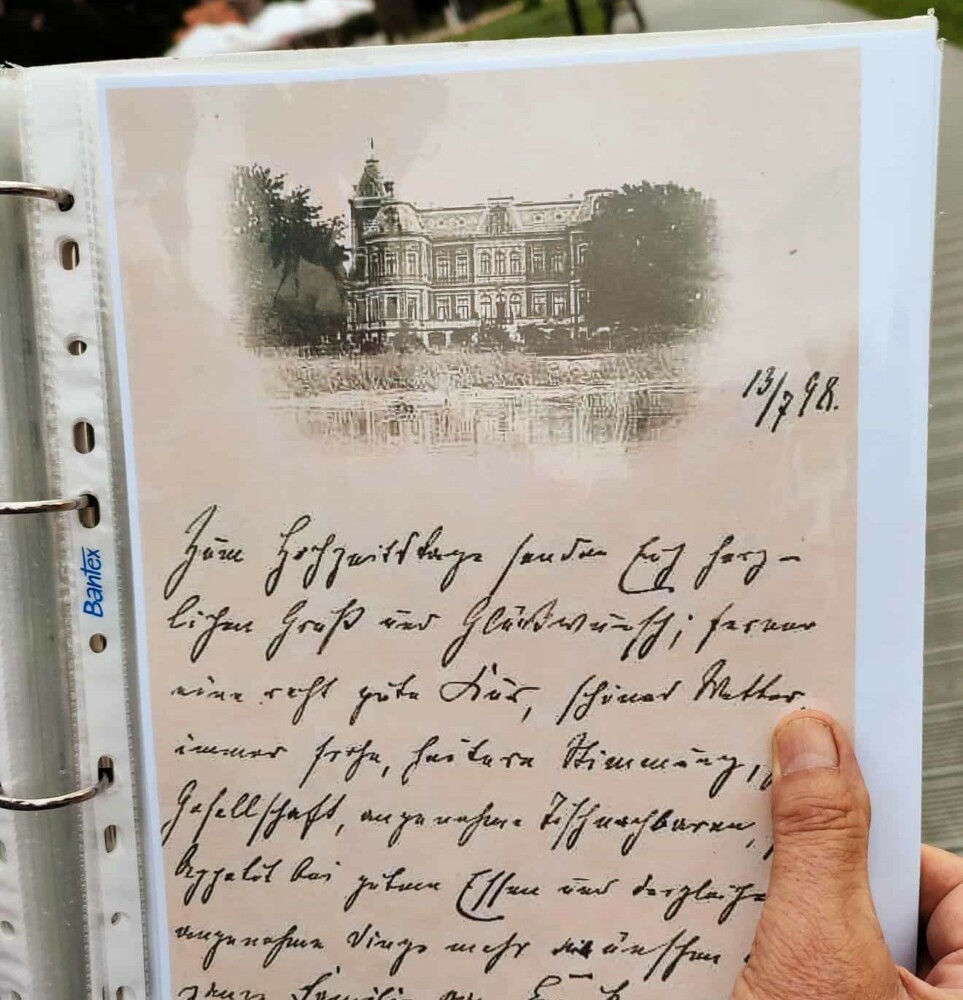 Bantex
13/7 98.
Zum Hochzeitstage senden Euch herz-
lichen Gruß und Glückwunsch; ferner
eine recht gute Kur, schönes Wetter,
immer frohe, heitere Stimmung,
Gesellschaft, angenehme Tischnachbaren,
Appetit bei gutem Essen und dergleiche
angenehme Dinge mehr wünschen
ganze Familie